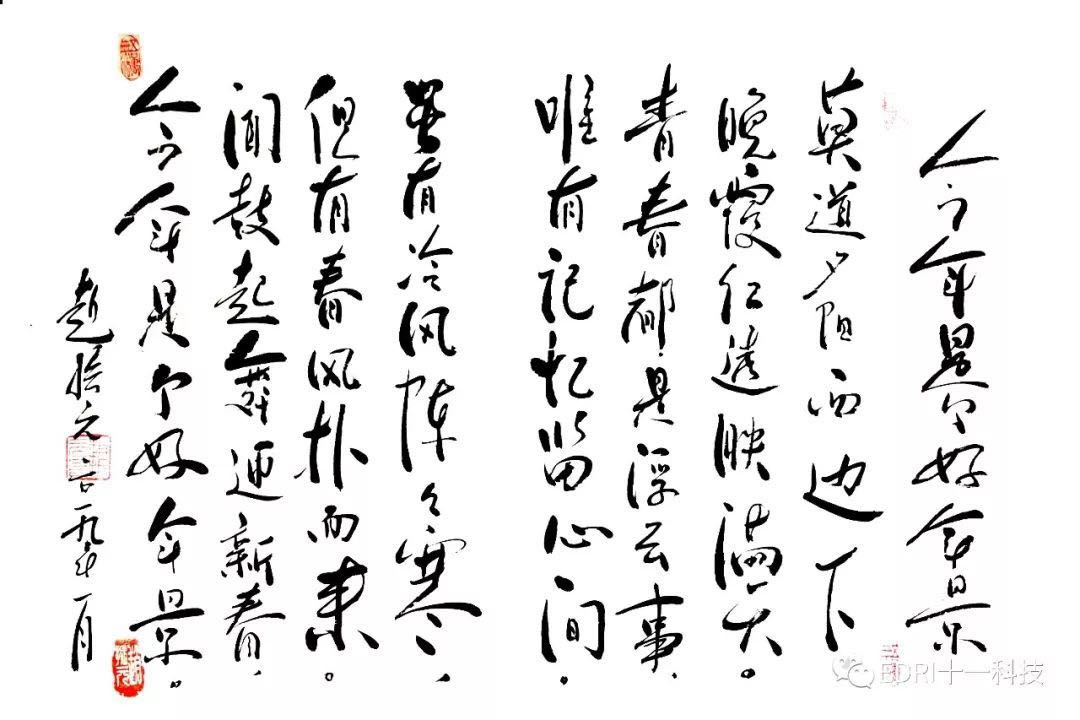 今年是个好年景
莫道夕阳西边下
晚霞映满天。
青春都是浮云事，
唯有记忆留心间．
虽有冷风阵阵寒．
但有春风扑面来．
闻鼓起舞迎新春，
今年是个好年景。
赵振元 二〇一九年一月
EDRI十一科技